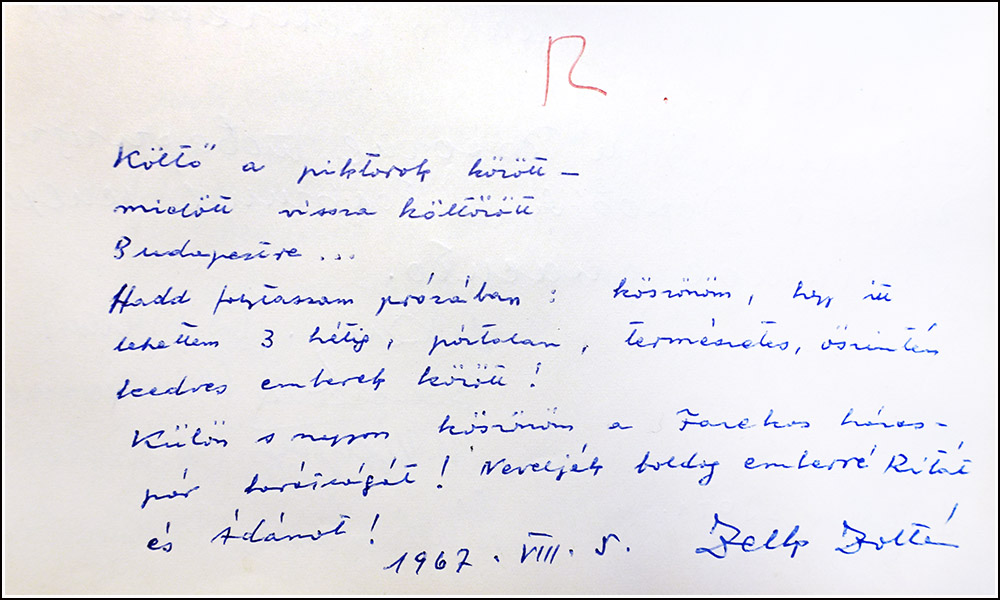 R.
Költő a piktorok között –
mielőtt vissza költözött
Budapestre ...
Hadd folytassam prózában : köszönöm, hogy itt
lehettem 3 hétig, pártalan, természetes, őszintén
kedves emberek között !
Külön s nagyon köszönöm a Fazekas házas-
pár barátságát ! Neveljék boldog emberré Ritát
és Ádámot !
1967. VIII. 5. Zelk Zoltán